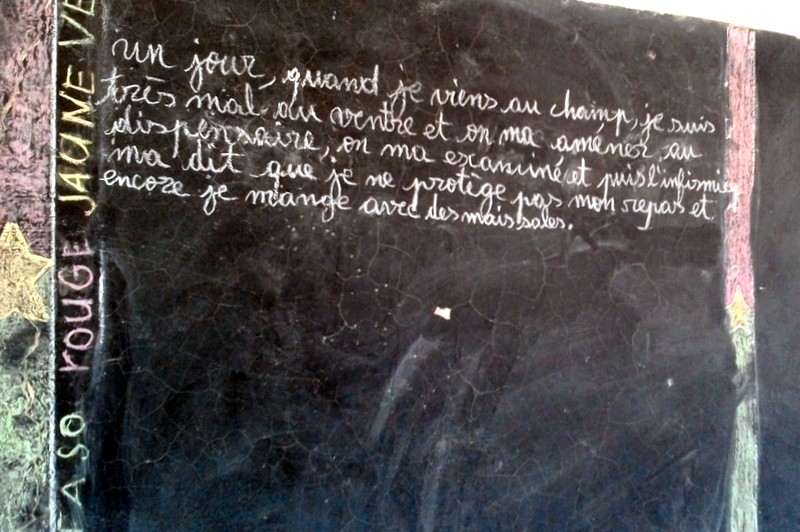 un jour, quand je viens au champ, je suis
très mal au ventre et on ma aménez au
dispensaire, on ma examiné et puis l'infirmié
ma dit que je ne protège pas mon repas et
encore je mange avec des mais sales.
FASO ROUGE JAUNE VE